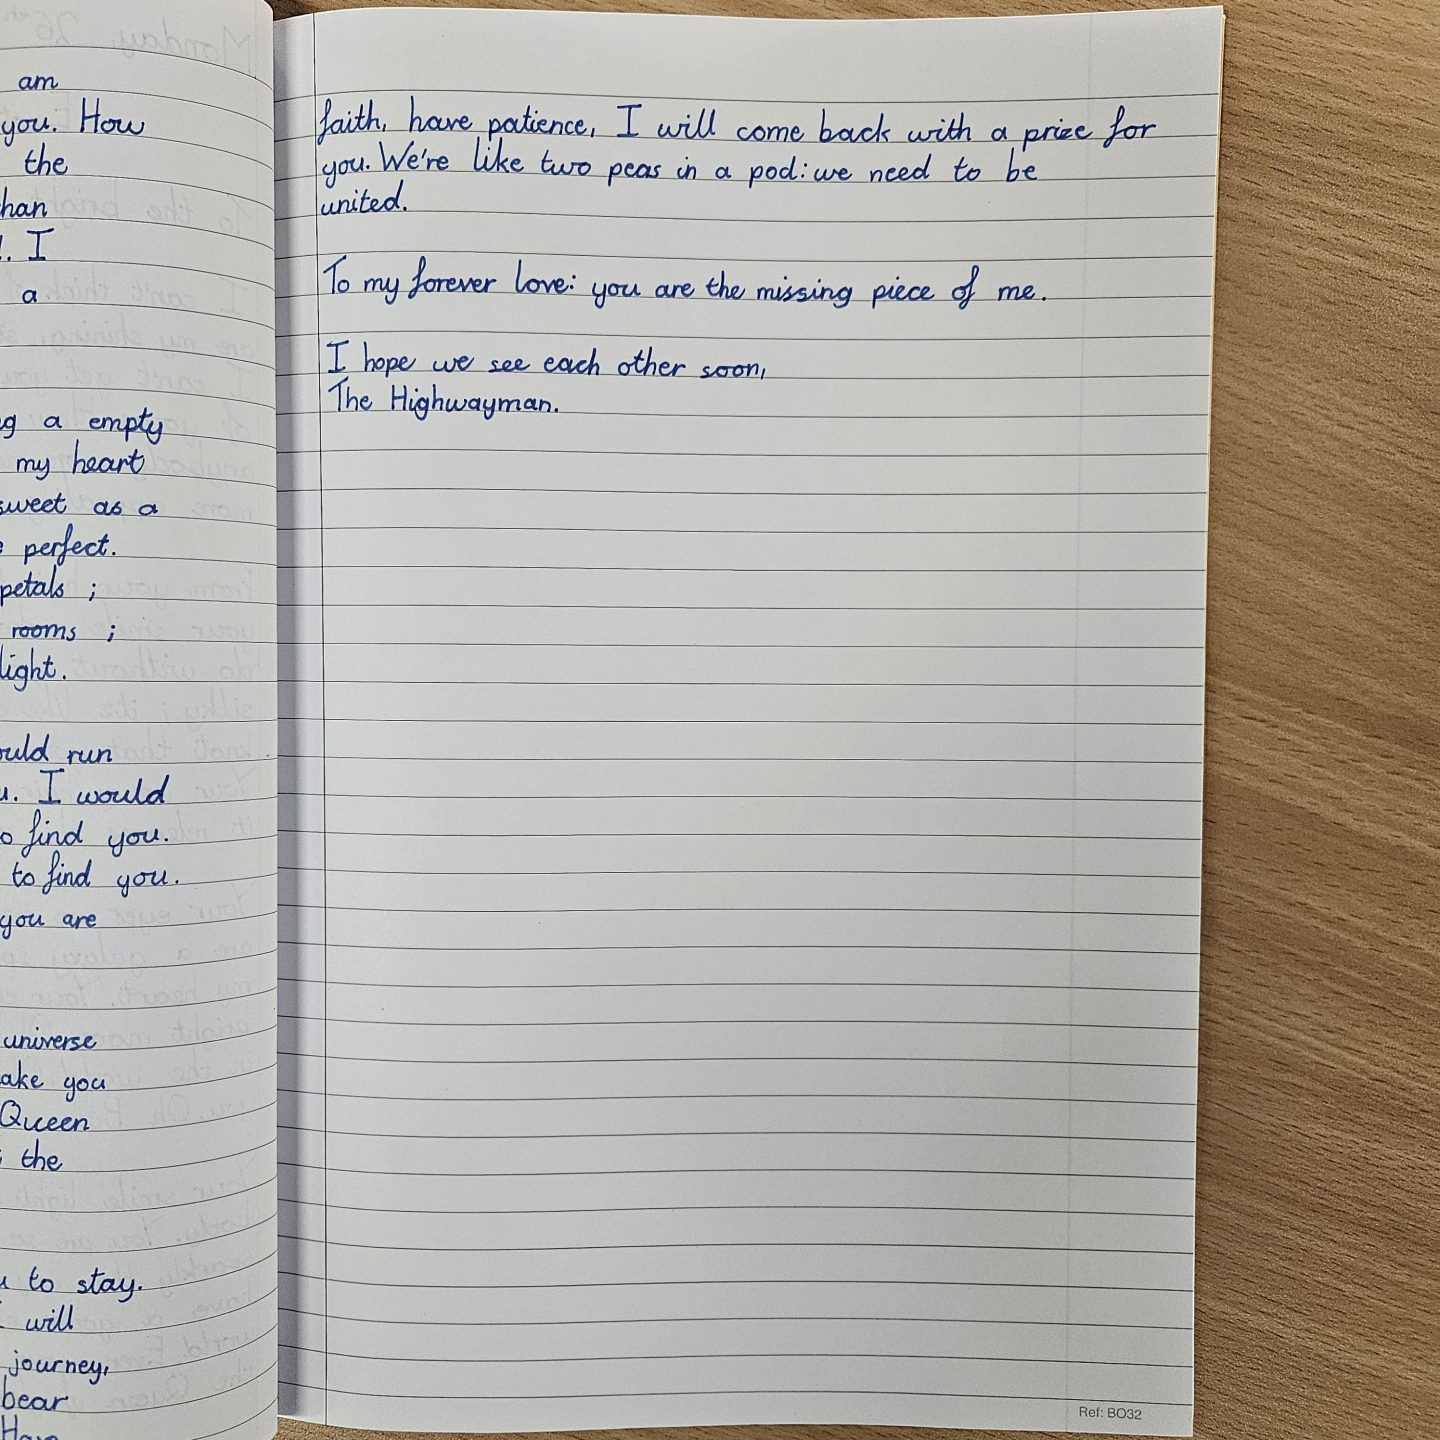 am
you. How
the
han
. I
a
g a empty
my heart
sweet as a
perfect.
petals ;
rooms ;
light.
ould run
u. I would
o find you.
to find you.
you are
universe
ake you
Queen
the
u to stay.
I will
journey,
bear
Have
faith, have patience, I will come back with a prize for
you. We're like two peas in a pod: we need to be
united.
To my forever love: you are the missing piece of me.
I hope we see each other soon,
The Highwayman.
Ref: BO32